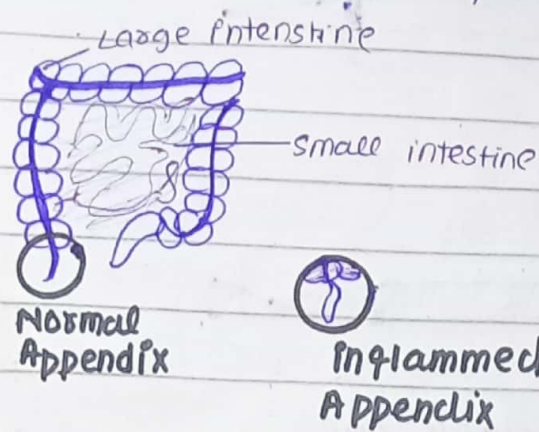 Large intenstine
Small intestine
Normal
Appendix
inflammed
Appendix